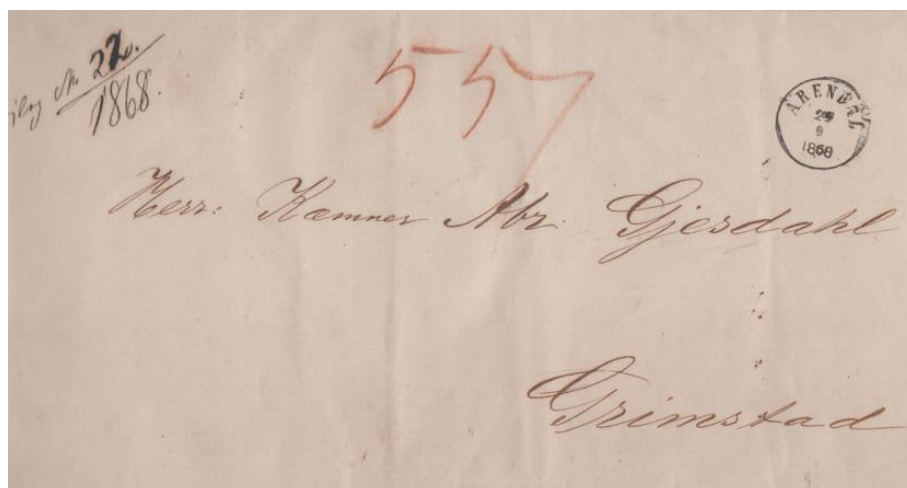 No 22.
1868.
557
ARENDAL
29
9
1868
Herr: Kæmner Abr. Gjesdahl
Grimstad